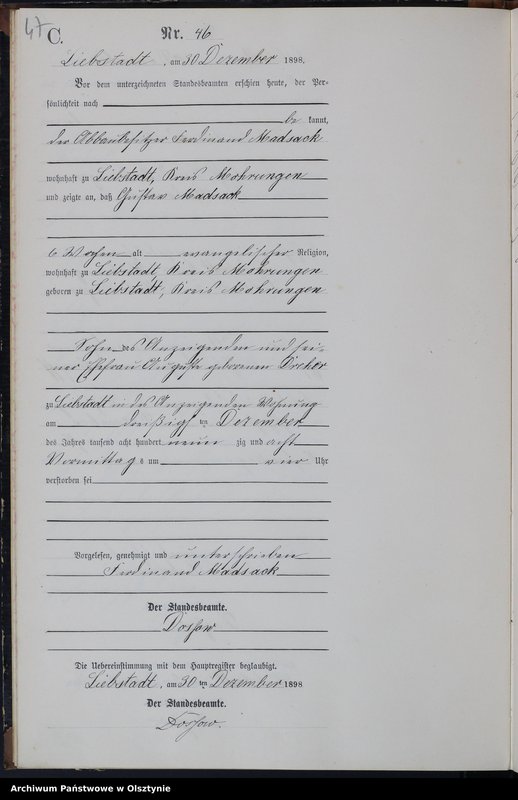 47
C.
Nr. 46
Liebstadt, am 30 Dezember 1898.
Vor dem unterzeichneten Standesbeamten erschien heute, der Per-
sönlichkeit nach
be kannt,
der Abbaubesitzer Ferdinand Madsack
wohnhaft zu Liebstadt, Kreis Mohrungen
und zeigte an, daß Gustav Madsack
6 Wochen alt evangelischer Religion,
wohnhaft zu Liebstadt, Kreis Mohrungen
geboren zu Liebstadt, Kreis Mohrungen
Sohn des Anzeigenden und sei-
ner Ehefrau Auguste geborenen Dreher
zu Liebstadt in des Anzeigenden Wohnung
am dreißigs ten Dezember
des Jahres tausend acht hundert neun zig und acht
Vormittag s um vier Uhr
verstorben sei
Vorgelesen, genehmigt und unterschrieben
Ferdinand Madsack
Der Standesbeamte.
Dossow
Die Uebereinstimmung mit dem Hauptregister beglaubigt.
Liebstadt, am 30 ten Dezember 1898
Der Standesbeamte.
Dossow.
Archiwum Państwowe w Olsztynie